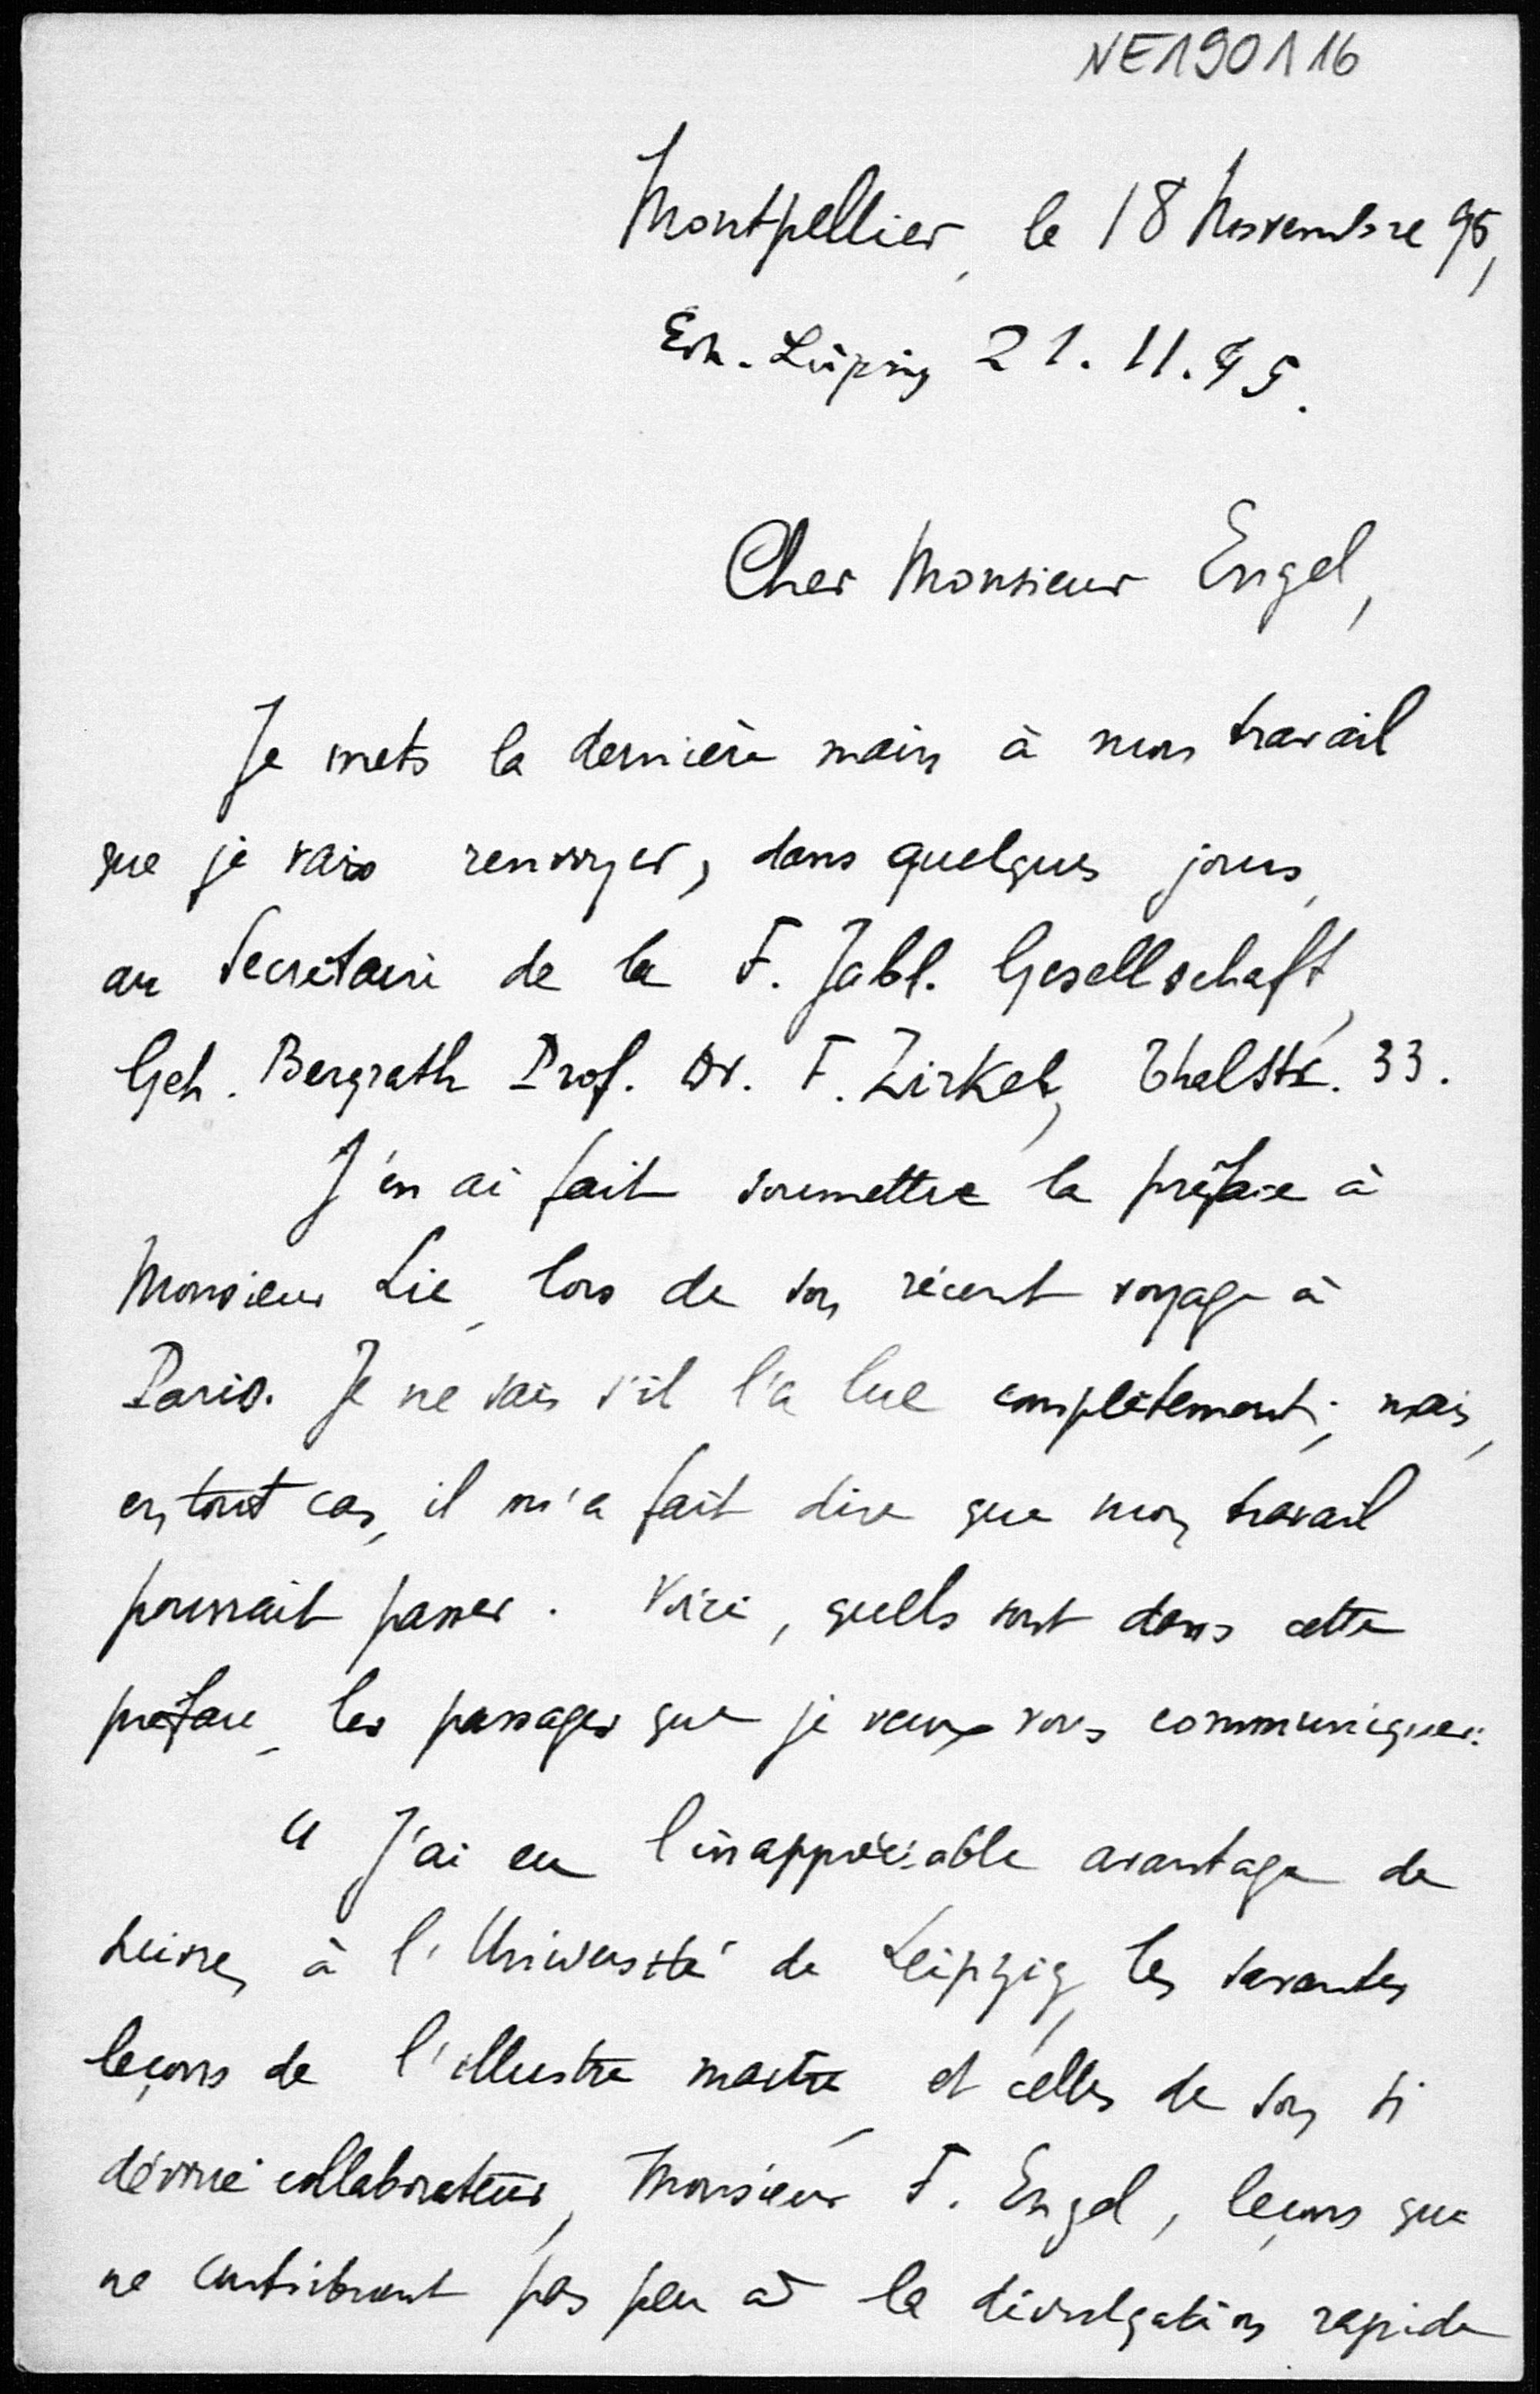 NE190116
Montpellier, le 18 Novembre 95,
Erh. Leipzig 21.11.95.
Cher Monsieur Engel,
Je mets la dernière main à mon travail
que je vais renvoyer, dans quelques jours,
au Secrétaire de la F. Jabl. Gesellschaft,
Geh. Bergrath Prof. Dr. F. Zirkel, Thalstr. 33.
J'en ai fait soumettre la préface à
Monsieur Lie, lors de son récent voyage à
Paris. Je ne sais s'il l'a lue complètement; mais,
en tout cas, il m'a fait dire que mon travail
pourrait passer. Voici, quels sont dans cette
préface, les passages que je veux vous communiquer:
" J'ai eu l'inappréciable avantage de
suivre, à l'Université de Leipzig, les savantes
leçons de l'illustre maître, et celles de son si
dévoué collaborateur, Monsieur F. Engel, leçons qui
ne contribuent pas peu à la divulgation rapide